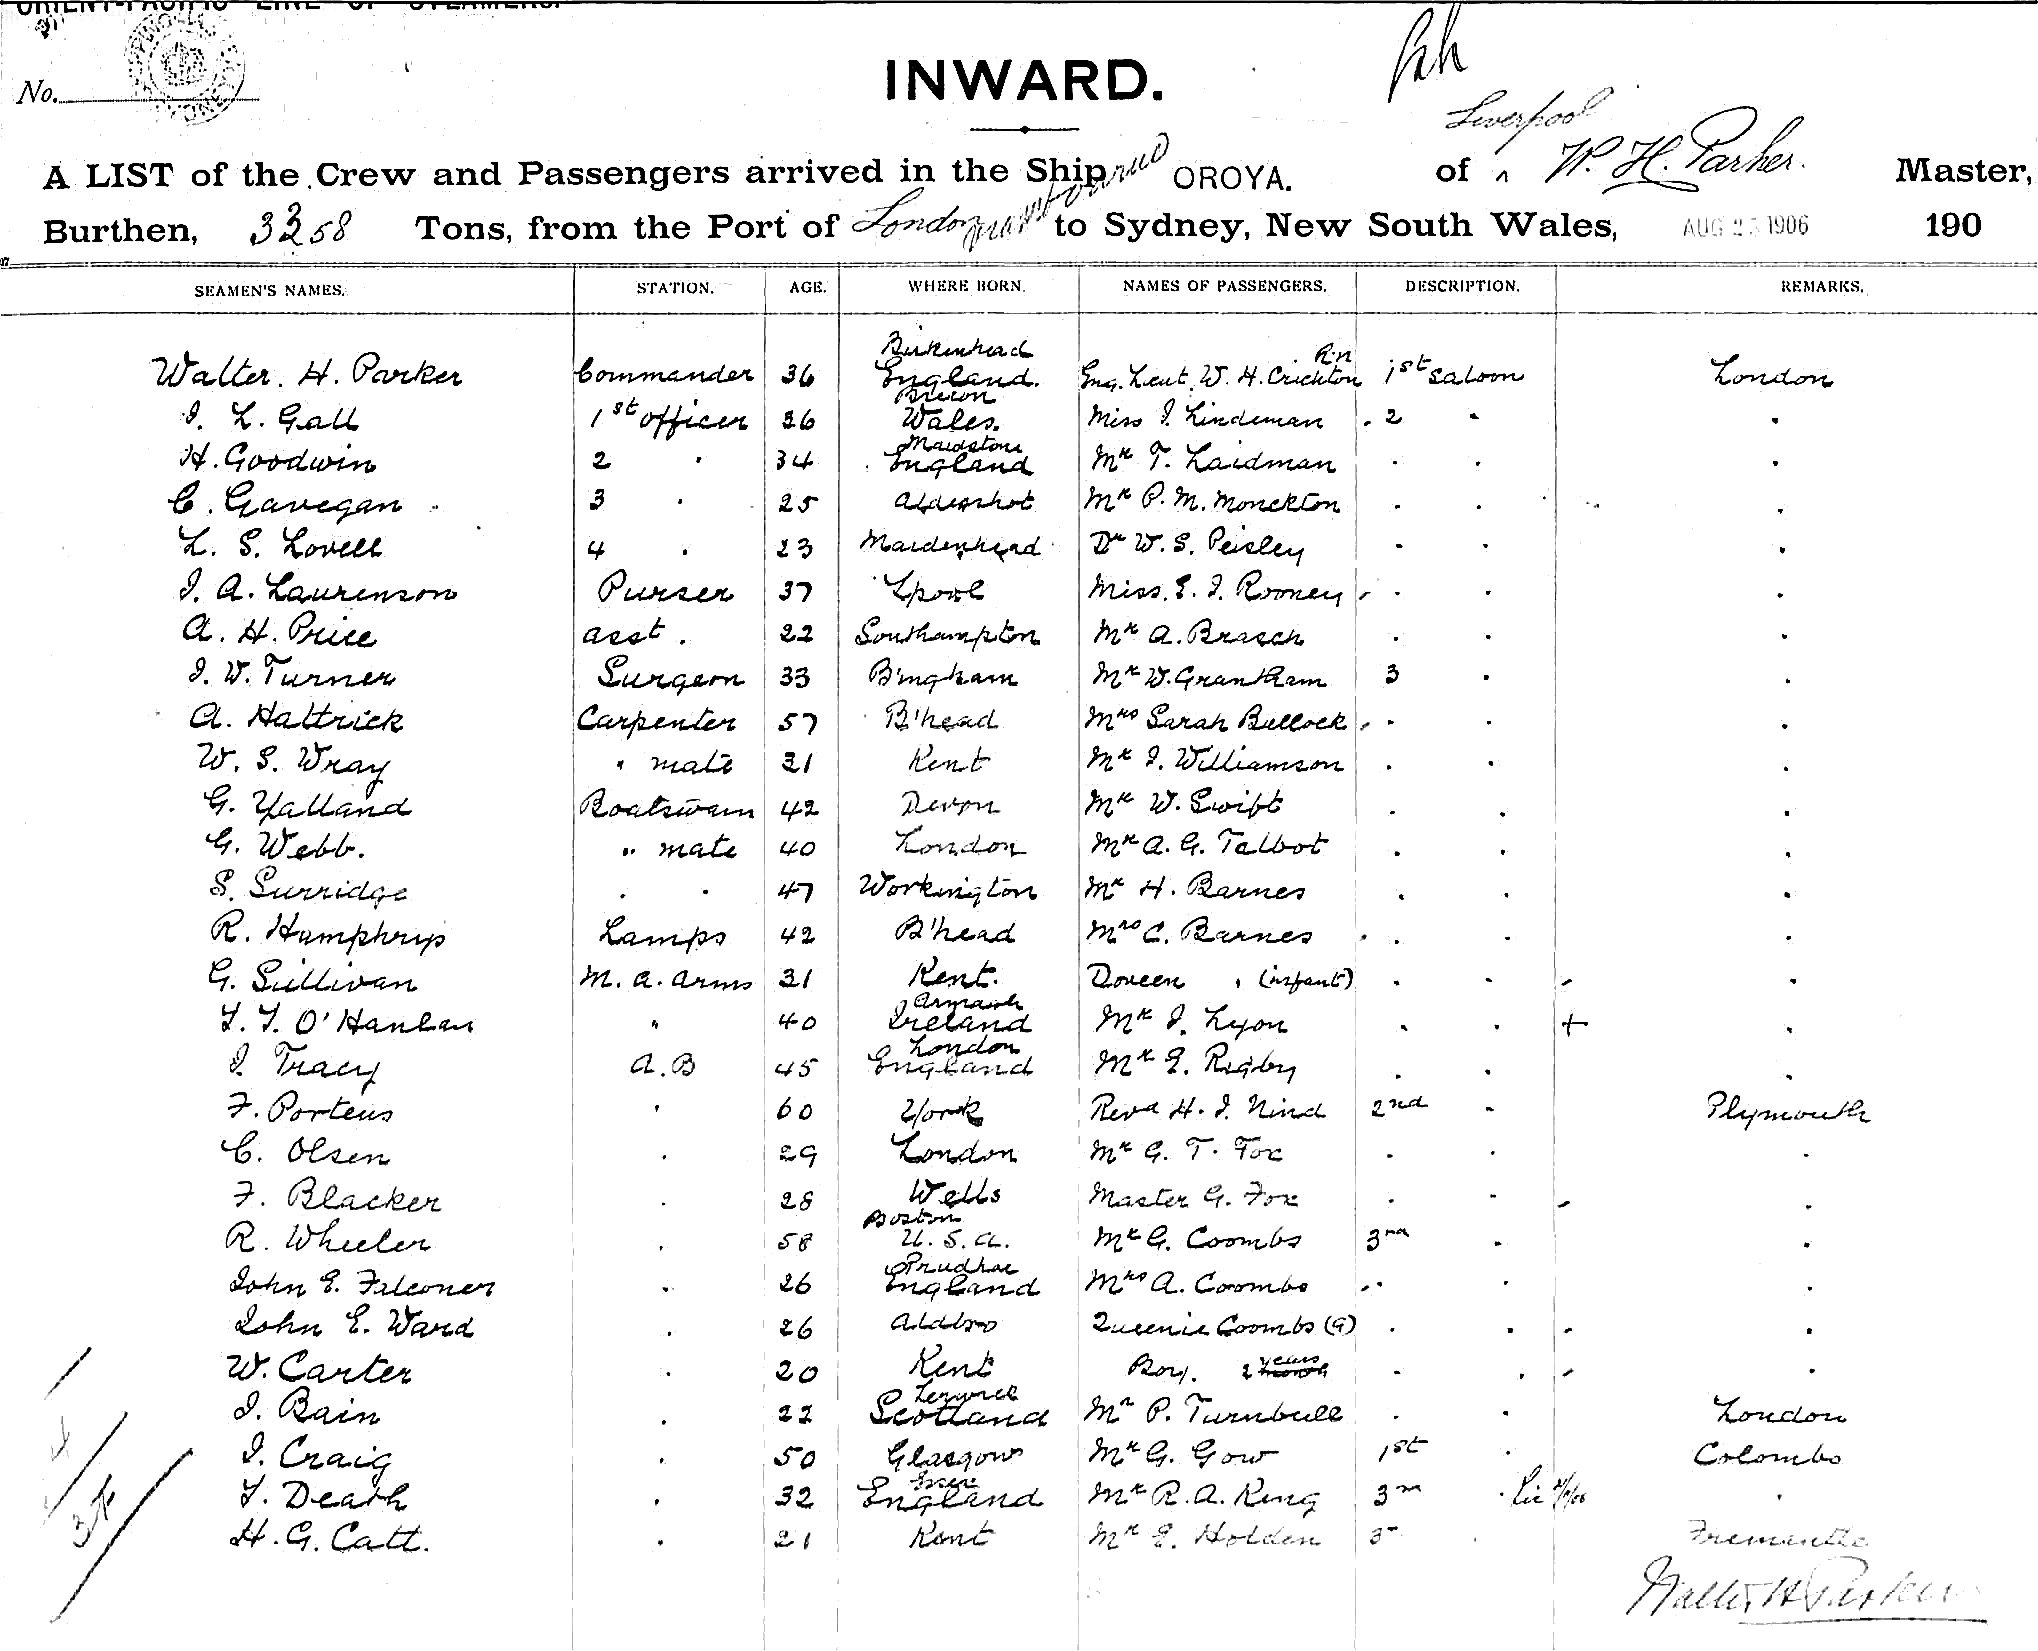 ORIENT-PACIFIC LINE OF STEAMERS.
No.
INWARD.
Liverpool
A LIST of the Crew and Passengers arrived in the Ship OROYA. of ^ W. H. Parker. Master,
Burthen, 3358 Tons, from the Port of London to Sydney, New South Wales, AUG 1906 190
SEAMEN'S NAMES. STATION. AGE. WHERE BORN. NAMES OF PASSENGERS. DESCRIPTION. REMARKS.
Walter. H. Parker Commander 36 Birkenhead England. Eng. Lieut. W. H. Crichton R.N 1st Saloon London
J. L. Gall 1st officer 36 Brecon Wales. Miss J. Lindeman . 2 " "
H. Goodwin 2 " 34 Maidstone England Mr T. Laidman " " "
C. Gavegan 3 " 25 Aldershot Mr P. M. Monckton " " "
L. S. Lovell 4 " 23 Maidenhead Dr W. S. Peisley " " "
J. A. Laurenson Purser 37 L'pool Miss. E. J. Rooney " " "
A. H. Price asst. 22 Southampton Mr A. Brasch " " "
J. W. Turner Surgeon 33 B'mgham Mr W. Grantham 3 " "
A. Hattrick Carpenter 57 B'head Mrs Sarah Bullock " " "
W. S. Wray " mate 31 Kent Mr J. Williamson " " "
G. Yalland Boatswain 42 Devon Mr W. Swift " " "
G. Webb. " mate 40 London Mr A. G. Talbot " " "
S. Surridge " " 47 Workington Mr H. Barnes " " "
R. Humphrys Lamps 42 B'head Mrs C. Barnes " " "
G. Sullivan M. a. arms 31 Kent. Doreen " (infant) " " "
T. J. O'Hanlan " 40 Armagh Ireland Mr J. Lyon " " + "
J. Tracy A.B 45 London England Mr E. Rigby " " "
F. Porteus " 60 York Revd H. J. Nind 2nd " Plymouth
C. Olsen " 29 London Mr G. T. Fox " " "
F. Blacker " 28 Wells Master G. Fox " " "
R. Wheeler " 58 Boston U.S.A. Mr G. Coombs 3rd " "
John E. Falconer " 26 Prudhoe England Mrs A. Coombs " " "
John E. Ward " 26 Aldbro Queenie Coombs (9) " " "
W. Carter " 20 Kent Boy. 2 years " " "
J. Bain " 22 Lerwick Scotland Mr P. Turnbull " " London
J. Craig " 50 Glasgow Mr G. Gow 1st " Colombo
T. Death " 32 Essex England Mr R. A. King 3rd " "
H. G. Catt. " 21 Kent Mr E. Holden 3 " Fremantle
Walter H Parker